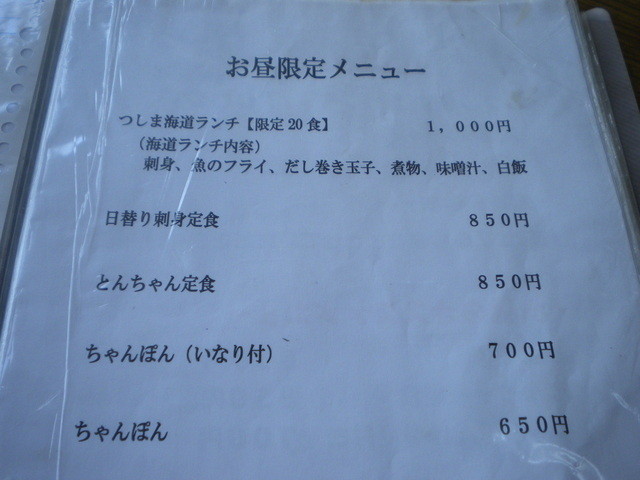 お昼限定メニュー
つしま海道ランチ【限定20食】 1,000円
（海道ランチ内容）
刺身、魚のフライ、だし巻き玉子、煮物、味噌汁、白飯
日替り刺身定食 850円
とんちゃん定食 850円
ちゃんぽん（いなり付） 700円
ちゃんぽん 650円